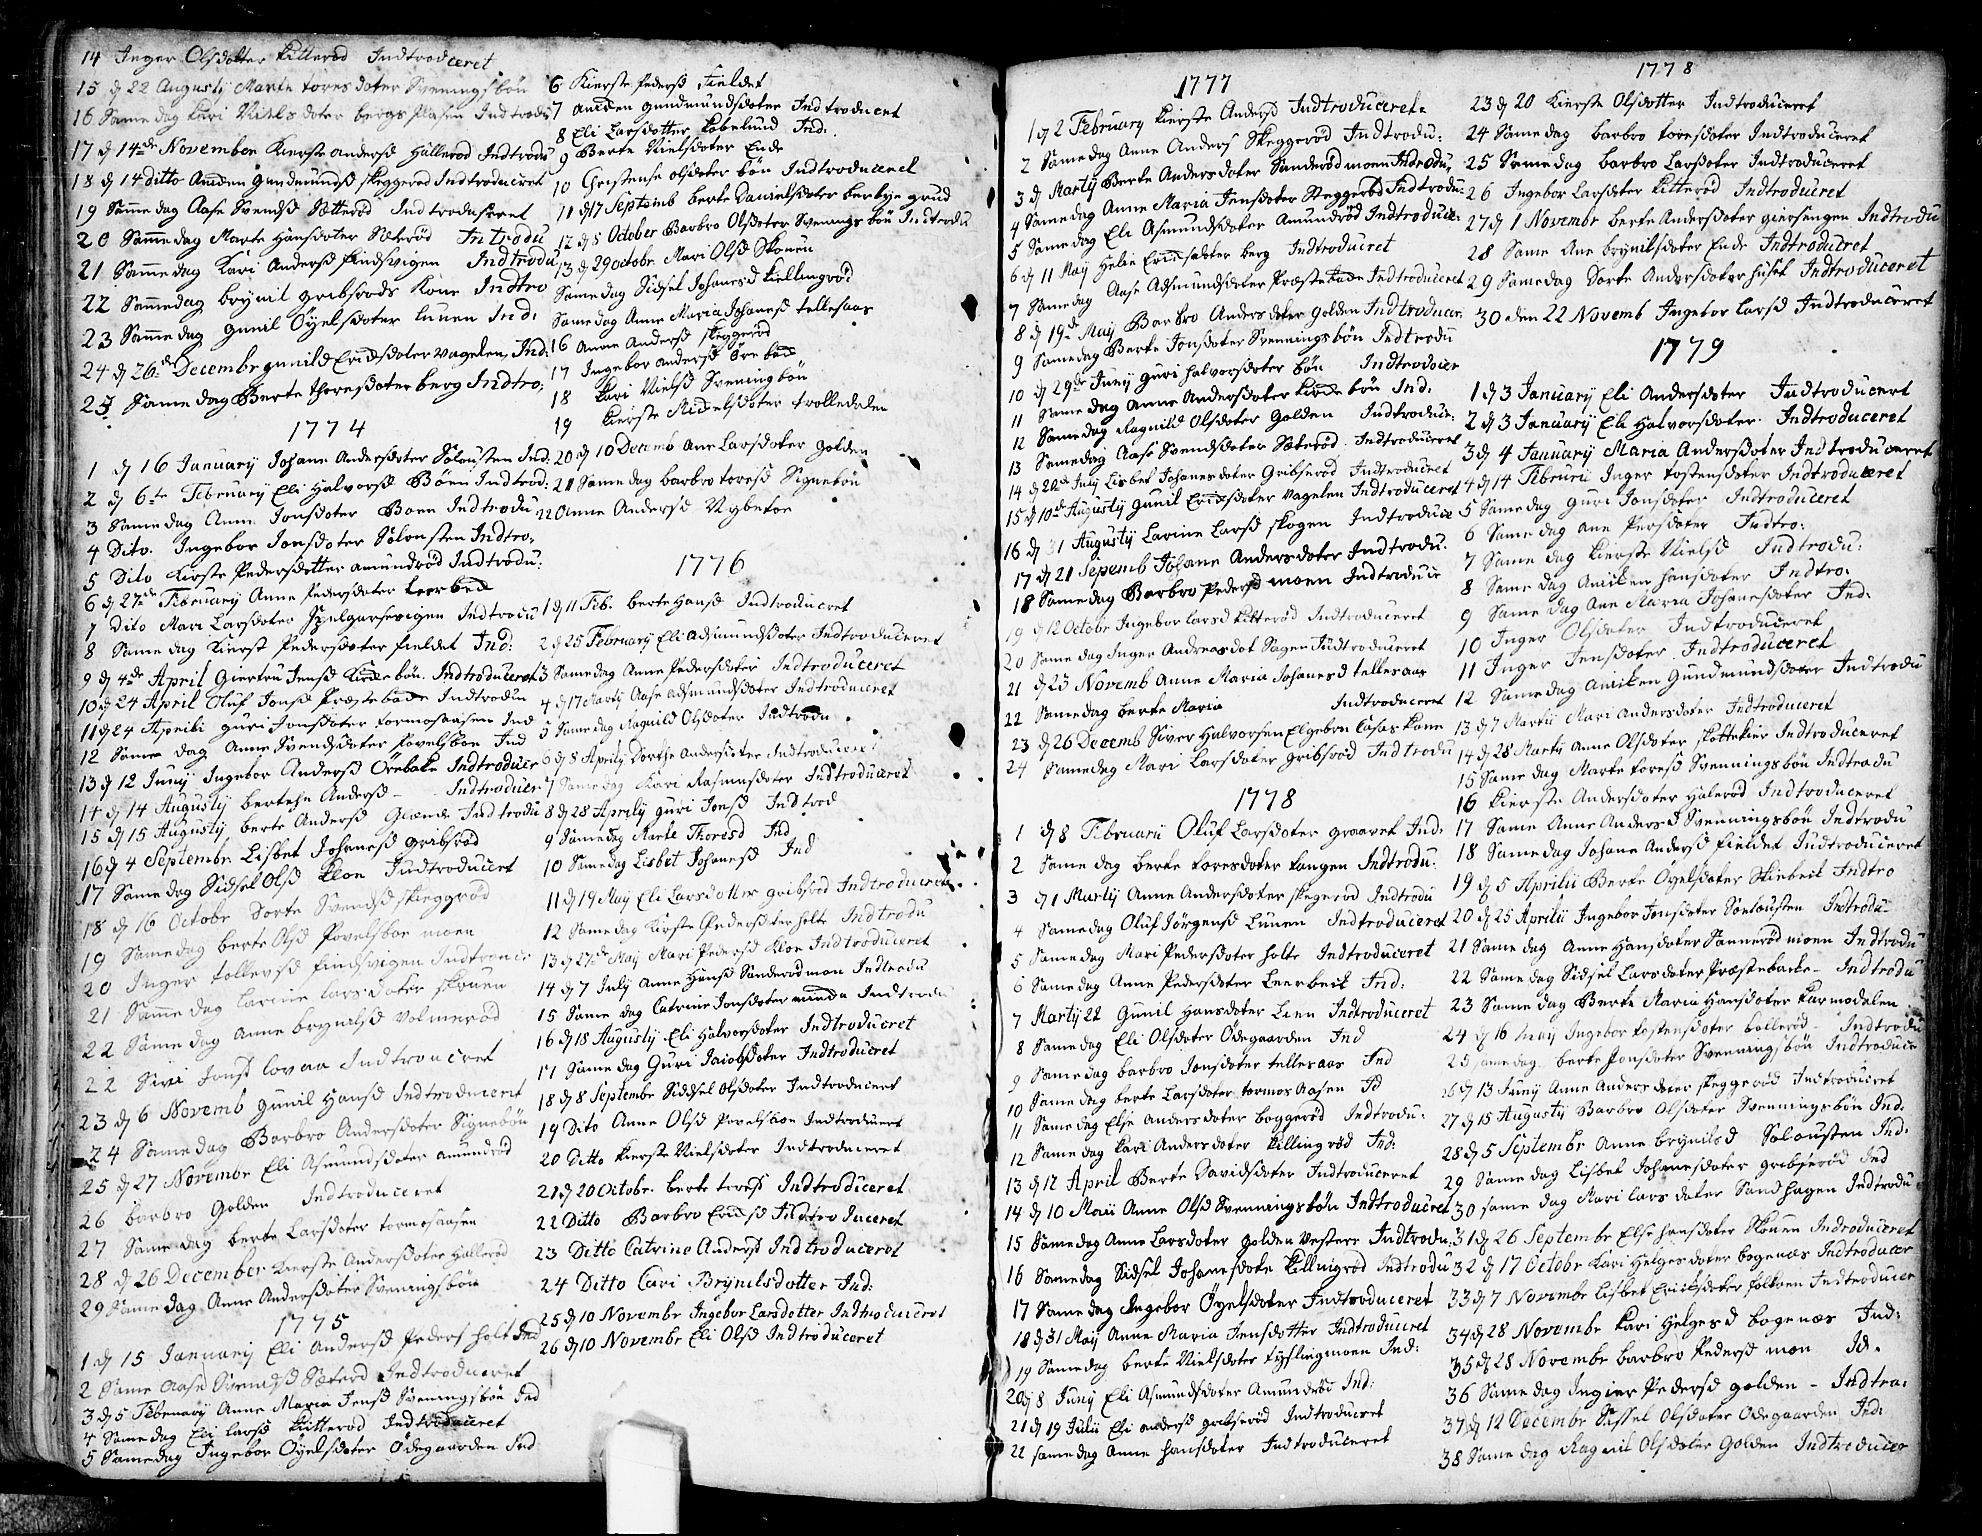 14 Inger Olsdotter Kitterød Indtroduceret
15 d 22 Augusty Marte toresdoter Svenningsbøn
16 Same dag Kari Nielsdoter bergs plasen Indtrodu
17 d 14de November Kierste andersd Hallerød Indtrodu
18 d 14 ditto Amden gundmunds skeggerød Indtroduceret
19 Same dag Aase Svensd Sæterød Indtroduceret
20 Same dag Marte Hansdoter Sæterød Introdu
21 Same dag Kari Andersd findsvigen Indtrodu
22 Samedag brynil gribsrøds kone Indtro
23 Samedag gunil Öyelsdoter lunen Ind:
24 d 26de Decembr gunild Erichsdoter vagelen Ind:
25 Same dag Berte thoresdoter berg Indtro:
1774
1 d 16 January Johane Andersdoter Solousten Ind:
2 d 6te February Eli Halvorsd Boen Indtrod:
3 Same dag Anne Jonsdoter Boen Indtrodu
4 Dito. Ingebor Jonsdoter Solousten Indtro:
5 Dito Kirste Pedersdotter amundrød Indtrodu:
6 d 27de February Anne Pedersdoter Leerbeck
7 Dito Mari Larsdoter Indtrodu
8 Same dag Kierst Pedersdoter fieldet Ind:
9 d 4de April Giertru Jensd Kindebön. Indtroduceret
10 d 24 April Oluf Jonsd Præstebade Indtrodun
11 d 24 Aprili guri Jonsdoter tormosaasen Ind
12 Same dag Anne Svendsdoter Povelsbøn Ind
13 d 12 Juny Ingebor Andersd Örebeke Indtroducer
14 d 14 Augusty bertehe Andersd - Indtroducer
15 d 15 Augusty berte Andersd Indtrodu
16 d 4 Septembr Lisbet Johanesd gribsrød
17 Same dag Sidsel Olsd Kloe Indtroduceret
18 d 16 Octobr Dorte Svendsd skieggrød
19 Samedag berte Olsd Povelsboe moen
20 Inger tollevsd findsvigen Indtroduc
21 Same dag Larine larsdoter skouen
22 Same dag Anne brynilsd Volmerød
22 Sivi Jonsd lovaa Indtroduceret
23 d 6 Novemb gunil Hansd Indtroduceret
24 Same dag Barbro Andersdoter Signebøn
25 d 27 Novembr Eli Asmundsdoter amundrød
26 barbro Golden Indtroduceret
27 Same dag berte Larsdoter tormosaasen
28 d 26 December Kierste Andersdoter Hallerød
29 Same dag Anne Andersdoter Svenningsbøn
1775
1 d 15 January Eli Andersd Peders holt Ind
2 Same Aase Svendsd Sæterød Indtroduceret
3 d 5 February Anne Maria Jensd Sveningsbøn Ind
4 Same dag Eli Larsd Kitterød Indtroduceret
5 Samedag Ingebor Öyelsdoter Ödegaarden Ind
6 Kierste Pedersd fieldet
7 amden gundmundsdoter Indtroduceret
8 Eli Larsdotter Kabelund Ind:
9 Berte Nielsdoter Ende
10 Christense olsdoter bön Indtroduceret
11 d 17 Septemb berte Danielsdoter berbye grud
12 d 5 October Barbro Olsdoter Svenings bön Indtrodu
13 d 29 octobr Mari Olsd Skouen
Same dag Sidsel Johanesd killingrød
Same dag Anne Maria Johanesd tellesaas
16 Anne Andersd skeggerød
17 Ingebor andersd Örebeck
18 Kari Nielsd Sveningbön
19 Kierste Nielsdoter trolledalen
20 d 10 Decemb Ane Larsdoter golden
21 Same dag barbro toresd Signebön
22 Anne Andersd Nybetoe
1776
1 d 11 Feb. berte Hansd Indtroduceret
2 d 25 February Eli asmundsdoter Indtroduceret
3 Samedag Anne Pedersdoter Indtroduceret
4 d 17 Marty Aase asmundsdoter Indtroduceret
5 Same dag Ragnild Olsdoter Indtrodu
6 d 8 Aprily Dorthe Andersdoter Indtroduceret
7 Same dag Kari Rasmusdoter Indtroduceret
8 d 28 Aprily guri Jonsd Indtrod
9 Samedag Marte Thoresd Ind
10 Samedag Lisbet Johanesd Ind
11 d 19 May Eli Larsdotter gribsrød Indtroduceret
12 Same dag Kirste Pedersdoter holte Indtrodu
13 d 27de May Mari Pedersd Kloe Indtroduceret
14 d 7 July Anne Hansd Sanderød mon Indtrodu
15 Same dag Catrine Jonsdoter minda Indtrodu
16 d 18 Augusty Eli Halvorsdoter Indtroduceret
17 Same dag Guri Jacobsdoter Indtroduceret
18 d 8 Septembr Sidsel Olsdoter Indtroduceret
19 Dito Anne Olsd Povelsboe Indtroduceret
20 Ditto Kierste Nielsdoter Indtroduceret
21 d 20 Octobr. berte toresd Indtroduceret
22 Ditto Barbro Erichsd Indtroduceret
23 Ditto Catrine Andersd Indtroduceret
24 Ditto Cari Brynilsdotter Ind:
25 d 10 Novembr Ingebor Larsdotter Indtroduceret
26 d 10 Novembr Eli Olsd Indtroduceret
1777
1 d 2 February Kierste Andersd Indtroduceret
2 Same dag Anne Andersd Skeggerød Indtrodu:
3 d Marty Berte Andersdoter Sanderød moen Indtrodu
4 Same dag Anne Maria Jensdoter Skeggerød Indtrodu:
5 Same dag Eli Asmundsdoter Amundrød Indtroduce:
6 d 11 May Helie Erichsdoter berg Indtroduceret
7 Same dag Aase Asmundsdoter Præstebade Indtroduceret
8 d 19de May Barbro Andersdoter Golden Indtroducer
9 Same dag Berte Jonsdoter Svenningsbön Indtrodu
10 d 29de Juny guri halvorsdoter bön Indtroducer
11 Same dag Anne Andersdoter Kinde bön Ind:
12 Same dag Ragnild Olsdoter Golden Indtroduce:
13 Same dag Aase Svendsdoter Sæterød Indtroduceret
14 d 22de July Lisbet Johanesdoter Gribserød Indtroduceret
15 d 10de Augusty Gunil Erichsdoter Vagelen Indtroduceret
16 d 31 Augusty Larine Larsd skogen Indtroduce
17 d 21 Sepemb Johane Andersdoter Indtrodu.
18 Same dag Barbro Pedersd moen Indtroduce
19 d 12 Octobr Ingebor larsd Kitterød Indtroduceret
20 Same dag Inger Andreasdot Sagen Indtroduceret
21 d 23 Novemb Anne Maria Johanesd tellesaas
22 Same dag berte Maria Indtroduceret
23 d 26 Decemb Siver Halvorsen Elgebroen Casas Kone
24 Samedag Mari Larsdoter gribsrød Indtrodu
1778
1 d 8 Februarii Oluf Larsdoter graaret Ind:
2 Same dag berte toresdoter tangen Indtrodu:
3 d 1 Marty Anne Andersdoter skegerød Indtrodu
4 Samedag Oluf Jörgensd Lunen Indtroduceret
5 Samedag Mari Pedersdoter holte Indtroduceret
6 Samedag Anne Pedersdoter Leerbeck Ind:
7 Marty 22 Gunil Hansdoter Lien Indtroduceret
8 Samedag Eli Olsdoter Ödegaarden Ind
9 Same dag barbro Jonsdoter tellesaas Ind
10 Same dag berte Larsdoter tormos Aasen Id
11 Same dag Else Andersdoter boggerød Indtrodu:
12 Same dag Kari Andersdoter Killingrød Ind:
13 d 12 April Berte Davidsdoter Indtroduceret
14 d 10 Maii Anne Olsd Svenningsbön Indtroduceret
15 Same dag Anne Larsdoter golden Vestere Indtrodu
16 Same dag Sidsel Johanesdote Killingrød Indtrodu
17 Same dag Ingebor Öyelsdoter Indtroduceret
18 d 31 May Anne Maria Jensdotter Indtroduceret
19 Same dag berte Nielsdoter tyslingmoen Ind:
20 d 8 Juny Eli Asmundsdoter Amundebø Ind:
21 d 19 Julii Eli andersd gribserød Indtroduceret
22 same dag Anne hansdoter Indtroduceret
1778
23 d 20 Kierste Olsdotter Indtroduceret
24 Same dag barbro toresdoter Indtroduceret
25 Same dag barbro Larsdoter Indtroduceret
26 Ingebor Larsdoter Kitterød Indtroduceret
27 d 1 Novembr berte Andersdoter giersengen Indtrodu
28 Same Ane brynilsdoter Ende Indtroduceret
29 Same dag Dorte Andersdoter huset Indtroduceret
30 den 22 Novemb Ingebor Larsd Indtroduceret
1779
1 d 3 January Eli Andersdoter Indtroducert
2 d 3 January Eli Halvorsdoter. Indtroduceret
3 d 4 January Maria Andersdoter Indtroduceret
4 d 14 Februrii Inger tostensdoter Indtroduceret
5 Same dag guri Jonsdoter Indtroduceret
6 Same dag ane Persdoter Indtro:
7 Same dag Kierste Nielsd Indtrodu:
8 Same dag Anniken hansdoter Indtro:
9 Same dag Ane Maria Johanesdoter Ind:
10 Inger Olsdoter Indtroduceret
11 Inger Jensdoter Indtroduceret
12 Same dag Anniken Gundmundsdoter Indtrodu
13 d 7 Martii Mari Andersdoter Indtroduceret
14 d 28 Martii Anne Olsdoter skottekier Indtroduceret
15 Same dag Marte toresd Svenningsbön Indtrodu
16 Kierste Andersdoter Halerød Indtroduceret
17 Same Anne Andersd Svenningsbön Indtrodu
18 Same dag Johane Andersd fieldet Indtroduceret
19 d 5 Aprilii Berte Öyelsdoter Skiebeck Indtro
20 d 25 Aprilii Ingebor Jonsdoter Solousten Indtrodu
21 Same dag Anne Hansdoter Sannerød moen Indtrodu
22 Same dag Sidsel Larsdoter Præstebacke - Indtrodu
23 Same dag Berte Maria Hansdoter Karmodalen
24 d 16 May Ingebor tostensdoter bollerød - Indtrodu
25 samedag berte Jonsdoter Svenningsbön Indtroduce
26 d 13 Juny Anne Andersdoter skeggerød Indtroduceret
27 d 15 Augusty Barbro Olsdoter Svenningsbön Ind:
28 d 5 Septembr Anne brynilsd Solousten Ind:
29 Same dag Lisbet Johanesdoter gribserød Ind
30 same dag Mari larsdoter Sandhagen Indtrodu
31 d 26 Septembr Else hansdoter Skouen Indroduceret
32 d 17 Octobr Kari Helgesdoter bogenæs Indtroducer
33 d 7 Novembr Lisbet Ericksdoter folkoen Indtroducer
34 d 28 Novembr Kari Helgesd bogenæs Ind:
35 d 28 Novembr barbro Pedersd mon Id.
36 Same dag Ingier Pedersd golden - Indtro:
37 d 12 Decembr Sissel Olsdoter Odegaarden Ind:
38 Same dag Ragnil Olsdoter Golden Indtroducer